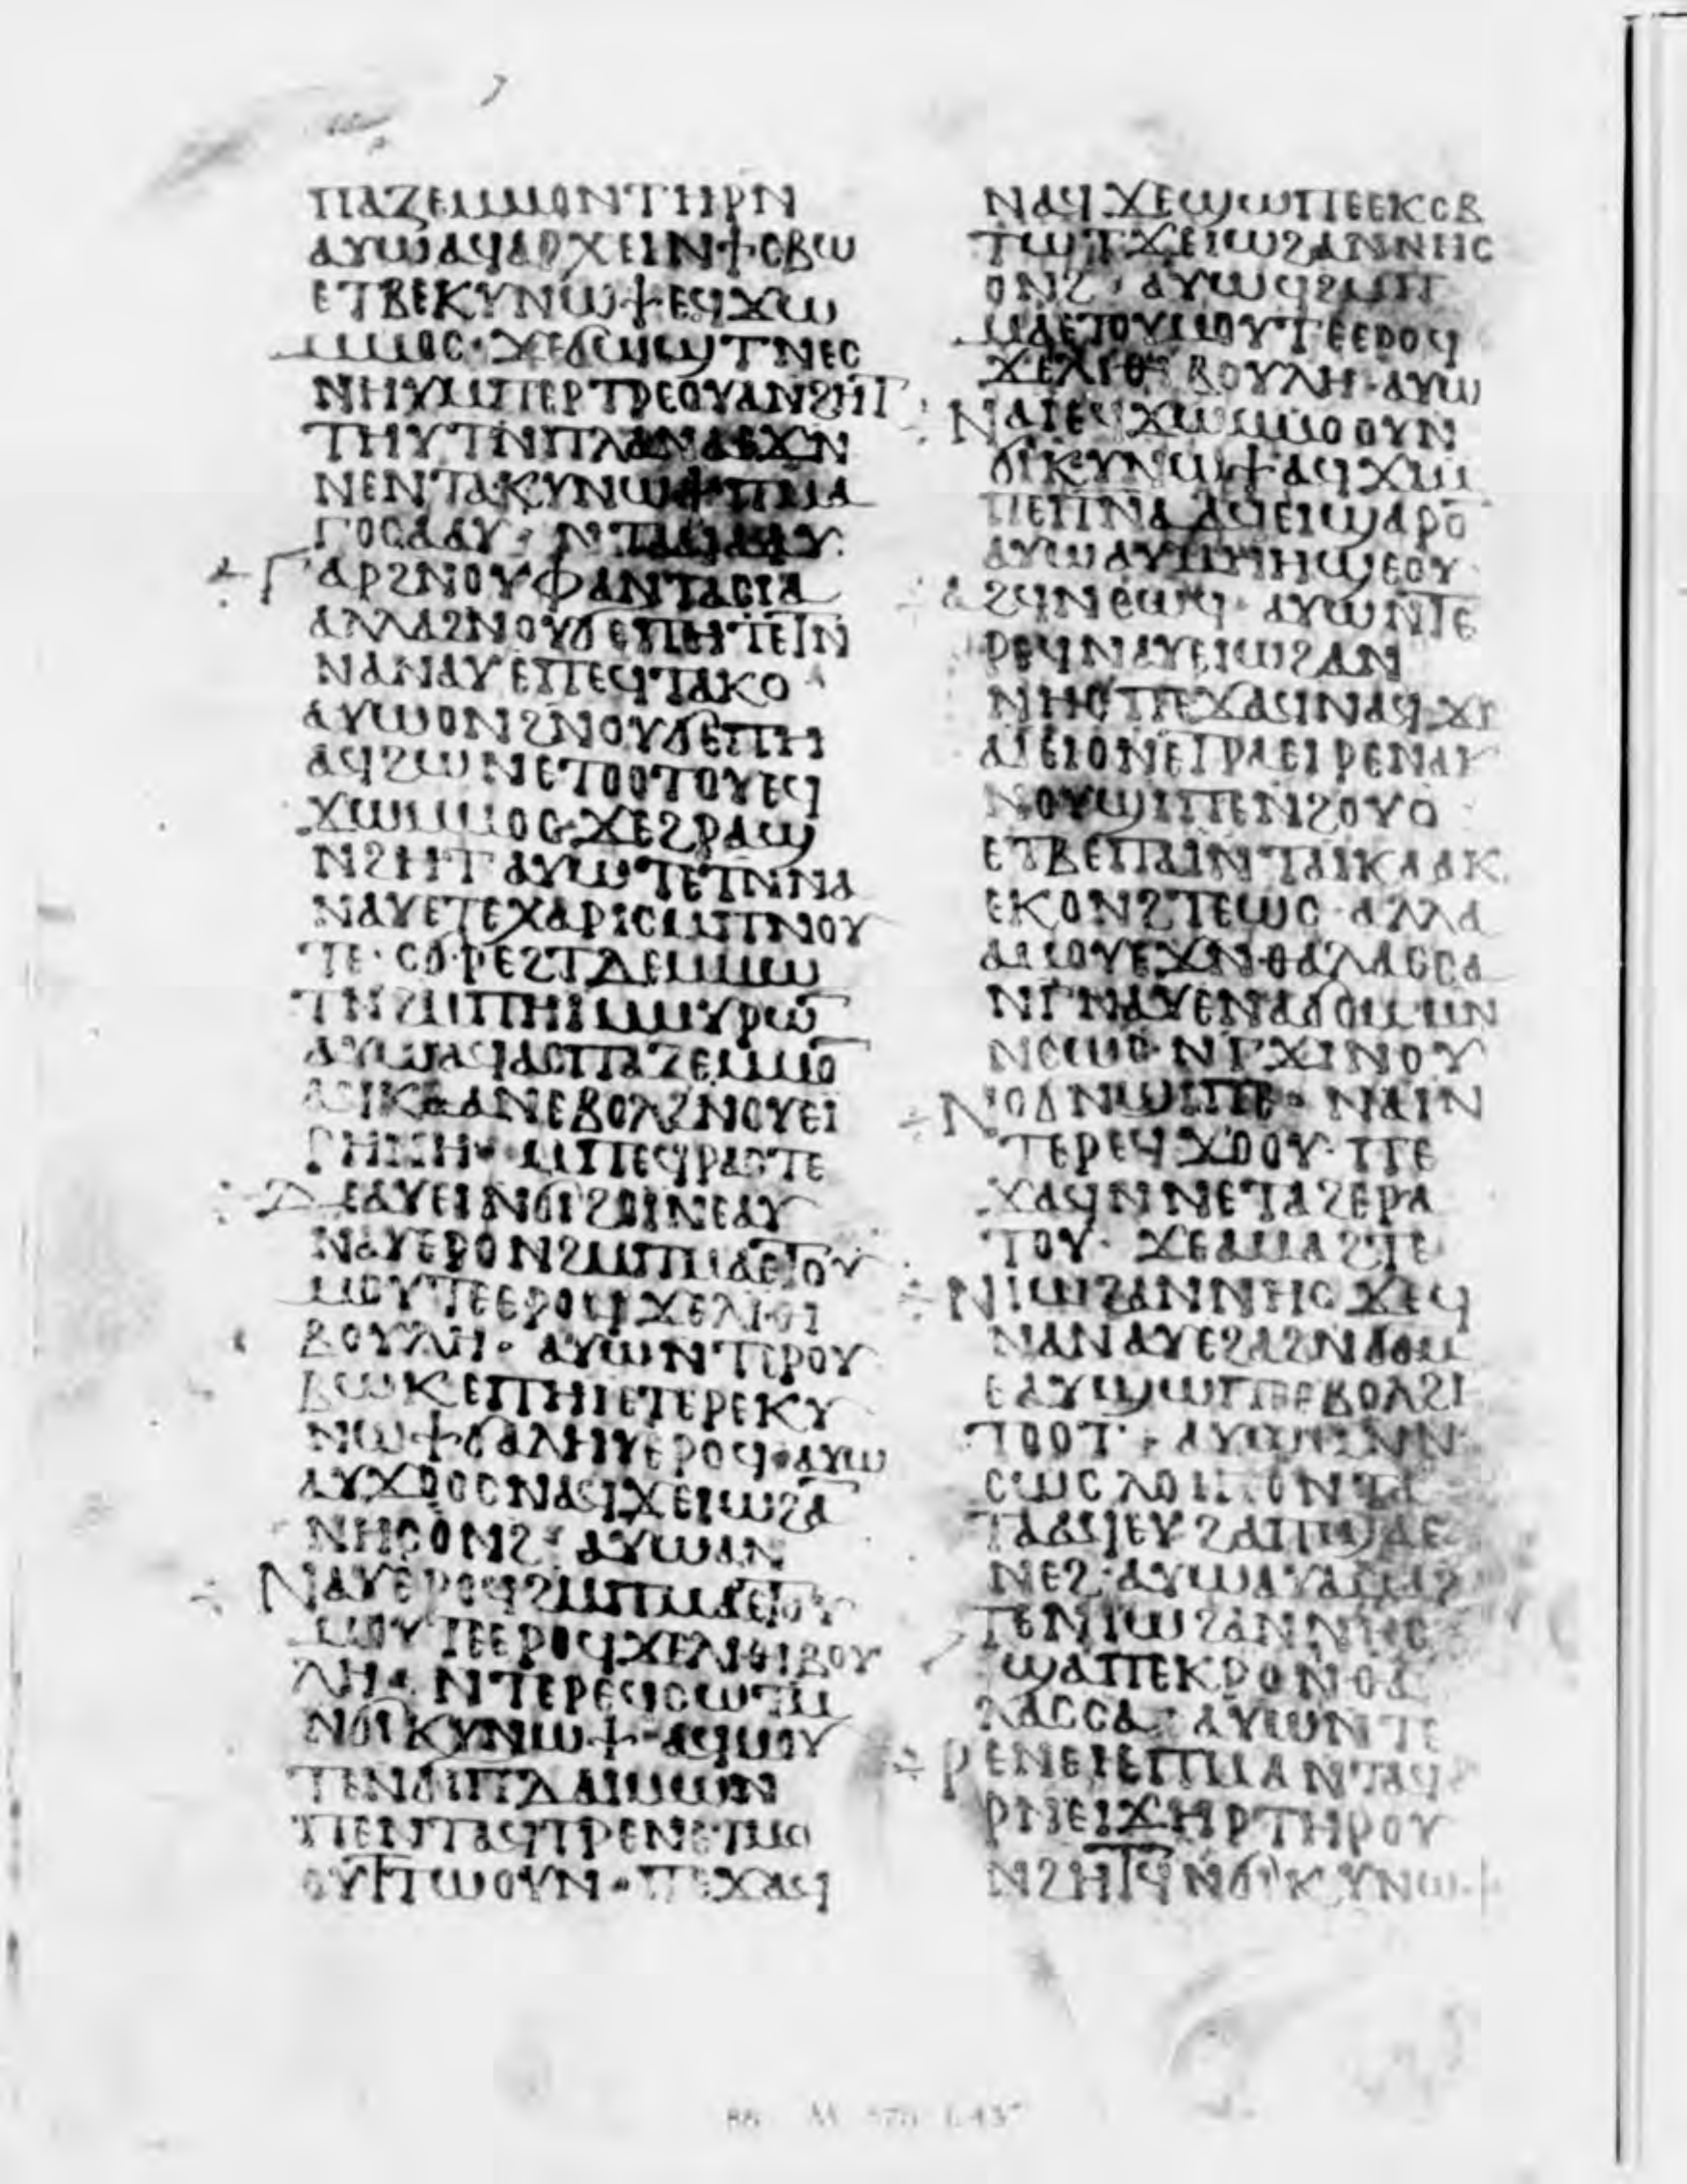 ⲡⲁⲍⲉⲙⲙⲟⲛⲧⲏⲣⲛ
ⲁⲩⲱⲁϥⲁⲣⲭⲉⲓⲛϯⲥⲃⲱ
ⲉⲧⲃⲉⲕⲩⲛⲱⲯⲉϥϫⲱ
ⲙⲙⲟⲥ· ϫⲉϭⲱϣⲧⲛⲉⲥ
ⲛⲏⲩⲙⲡⲉⲣⲧⲣⲉⲟⲩⲁⲛϩⲏⲧ
ⲧⲏⲩⲧⲛⲡⲗⲁⲛⲁⲉϫⲛ
ⲛⲉⲛⲧⲁⲕⲩⲛⲱⲯⲡⲙⲁ
ⲅⲟⲥⲁⲁⲩ· ⲛⲧⲁϥⲁⲁⲩ
ⲅⲁⲣϩⲛⲟⲩⲫⲁⲛⲧⲁⲥⲓⲁ
ⲁⲗⲗⲁϩⲛⲟⲩϭⲉⲡⲏⲧⲉⲧⲛ
ⲛⲁⲛⲁⲩⲉⲡⲉϥⲧⲁⲕⲟ
ⲁⲩⲱⲟⲛϩⲛⲟⲩϭⲉⲡⲏ
ⲁϥϩⲱⲛⲉⲧⲟⲟⲧⲟⲩⲉϥ
ϫⲱⲙⲙⲟⲥ·ϫⲉϩⲣⲁϣ
ⲛϩⲏⲧ ⲁⲩⲱⲧⲉⲧⲛⲛⲁ
ⲛⲁⲩⲉⲧⲉⲭⲁⲣⲓⲥⲙⲡⲛⲟⲩ
ⲧⲉ· ⲥϭⲣⲉϩⲧⲇⲉⲙⲙⲱ
ⲧⲛϩⲙⲡⲏⲓⲙⲙⲩⲣⲱ̅
ⲁⲩⲱⲁϥⲁⲥⲡⲁⲍⲉⲙⲙⲟ̅
ⲁϥⲕⲁⲁⲛⲉⲃⲟⲗϩⲛⲟⲩⲉⲓ
ⲣⲏⲛⲏ· ⲙⲡⲉϥⲣⲁⲥⲧⲉ
ⲇⲉⲁⲩⲉⲓⲛϭⲓϩⲟⲓⲛⲉⲁⲩ
ⲛⲁⲩⲉⲣⲟⲛϩⲙⲡⲙⲁⲉⲧⲟⲩ
ⲙⲟⲩⲧⲉⲉⲣⲟϥϫⲉⲗⲓⲑⲓ
ⲃⲟⲩⲗⲏ· ⲁⲩⲱⲛⲧⲉⲣⲟⲩ
ⲃⲱⲕⲉⲡⲏⲓⲉⲧⲉⲣⲉⲕⲩ
ⲛⲱⲯϭⲁⲗⲏⲩⲉⲣⲟϥ·ⲁⲩⲱ
ⲁⲩϫⲟⲟⲥⲛⲁϥϫⲉⲓⲱϩⲁ̅
ⲛⲏⲥⲟⲛϩ· ⲁⲩⲱⲁⲛ
ⲛⲁⲩⲉⲣⲟϥϩⲙⲡⲙⲁⲉⲧⲟⲩ
ⲙⲟⲩⲧⲉⲉⲣⲟϥϫⲉⲗⲓⲑⲓⲃⲟⲩ
ⲗⲏ· ⲛⲧⲉⲣⲉϥⲥⲱⲧⲙ
ⲛϭⲓⲕⲩⲛⲱⲯ·ⲁϥⲙⲟⲩ
ⲧⲉⲛϭⲓⲡⲇⲁⲓⲙⲱⲛ
ⲡⲉⲛⲧⲁϥⲧⲣⲉⲛⲉⲧⲙⲟ
ⲟⲩⲧⲧⲱⲟⲩⲛ· ⲡⲉϫⲁϥ
ⲛⲁϥϫⲉϣⲱⲡⲉⲉⲕⲥⲃ
ⲧⲱⲧϫⲉⲓⲱϩⲁⲛⲛⲏⲥ
ⲟⲛϩ· ⲁⲩⲱϥϩⲙⲡ
ⲙⲁⲉⲧⲟⲩⲙⲟⲩⲧⲉⲉⲣⲟϥ
ϫⲉⲗⲓⲑⲓⲃⲟⲩⲗⲏ· ⲁⲩⲱ
ⲛⲁⲓⲉϥϫⲱⲙⲙⲟⲟⲩⲛ
ϭⲓⲕⲩⲛⲱⲯⲁϥϫⲓ
ⲡⲉⲡⲛⲁ ⲁϥⲉⲓϣⲁⲣⲟ̅
ⲁⲩⲱⲁⲩⲙⲏⲏϣⲉⲟⲩ
ⲁϩϥⲛⲥⲱϥ· ⲁⲩⲱⲛⲧⲉ
ⲣⲉϥⲛⲁⲩⲉⲓⲱϩⲁⲛ
ⲛⲏⲥⲡⲉϫⲁϥⲛⲁϥϫⲉ
ⲛⲟⲩϣⲙⲡⲉⲛϩⲟⲩⲟ
ⲉⲧⲃⲉⲡⲁⲓⲛⲧⲁⲓⲕⲁⲁⲕ
ⲉⲕⲟⲛϩⲧⲉⲱⲥ· ⲁⲗⲗⲁ
ⲁⲙⲟⲩⲉϫⲛⲑⲁⲗⲁⲥⲥⲁ
ⲛⲅⲛⲁⲩⲉⲛⲁϭⲟⲙⲙⲛ
ⲛⲥⲱⲥ·ⲛⲅϫⲓⲛⲟⲩ
ⲛⲟϭⲛϣⲓⲡⲉ· ⲛⲁⲓⲛ
ⲧⲉⲣⲉϥϫⲟⲟⲩ· ⲡⲉ
ϫⲁϥⲛⲛⲉⲧⲁϩⲉⲣⲁ
ⲧⲟⲩ· ϫⲉⲁⲙⲁϩⲧⲉ
ⲛⲓⲱϩⲁⲛⲛⲏⲥ ϫⲉϥ
ⲛⲁⲛⲁⲩⲉϩⲁϩⲛϭⲟⲙ
ⲉⲁⲩϣⲱⲡⲉⲉⲃⲟⲗϩⲓ
ⲧⲟⲟⲧ· ⲁⲩⲱⲙⲛⲛ
ⲥⲱⲥ ⲗⲟⲓⲡⲟⲛϯ
ⲧⲁⲁϥⲉⲩϩⲁⲡϣⲁⲉ
ⲛⲉϩ· ⲁⲩⲱⲁⲩⲁⲙⲁϩ
ⲧⲉⲛⲓⲱϩⲁⲛⲛⲏⲥ
ϣⲁⲡⲉⲕⲣⲟⲛⲑⲁ
ⲗⲁⲥⲥⲁ· ⲁⲩⲱⲛⲧⲉ
ⲣⲉⲛⲉⲓⲉⲡⲙⲁⲛⲧⲁϥ
ⲣⲛⲉⲓϫⲏⲣⲧⲏⲣⲟⲩ
ⲛϩⲏⲧϥⲛϭⲓⲕⲩⲛⲱⲯ